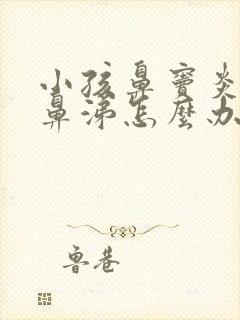 小孩鼻窦炎
鼻涕怎麼办
鲁巷